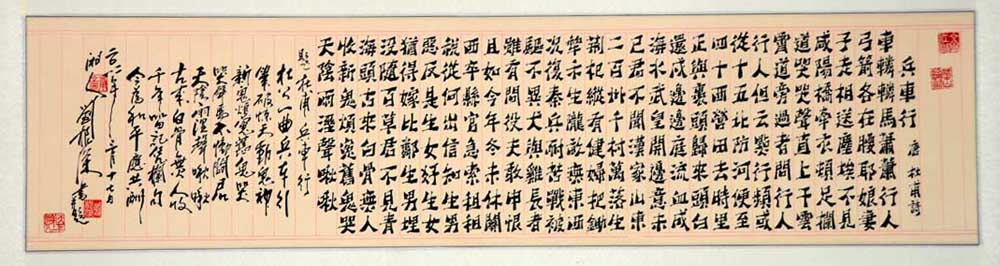 兵車行 唐 杜甫詩
車轔轔馬蕭蕭行人
弓箭各在腰耶娘妻
子走相送塵埃不見
咸陽橋牽衣頓足攔
道哭哭聲直上干雲
霄道旁過者問行人
行人但云點行頻或
從十五北防河便至
四十西營田去時里
正與裹頭歸來頭白
還戍邊邊庭流血成
海水武皇開邊意未
已君不聞漢家山東
二百州千村萬落生
荊杞縱有健婦把鋤
犂禾生隴畝無東西
況復秦兵耐苦戰被
驅不異犬與雞長者
雖有問役夫敢申恨
且如今年冬未休關
西卒縣官急索租租
稅從何出信知生男
惡反是生女好生女
猶得嫁比鄰生男埋
沒隨百草君不見青
海頭古來白骨無人
收新鬼煩冤舊鬼哭
天陰雨濕聲啾啾
題杜甫兵車行
杜公一曲兵車引
筆破驚天動鬼神
新鬼煩冤舊鬼哭
哭聲不
天陰雨濕聲啾啾
古來白骨無人收
千年
今為和平應共酬
年月十七日
湘書